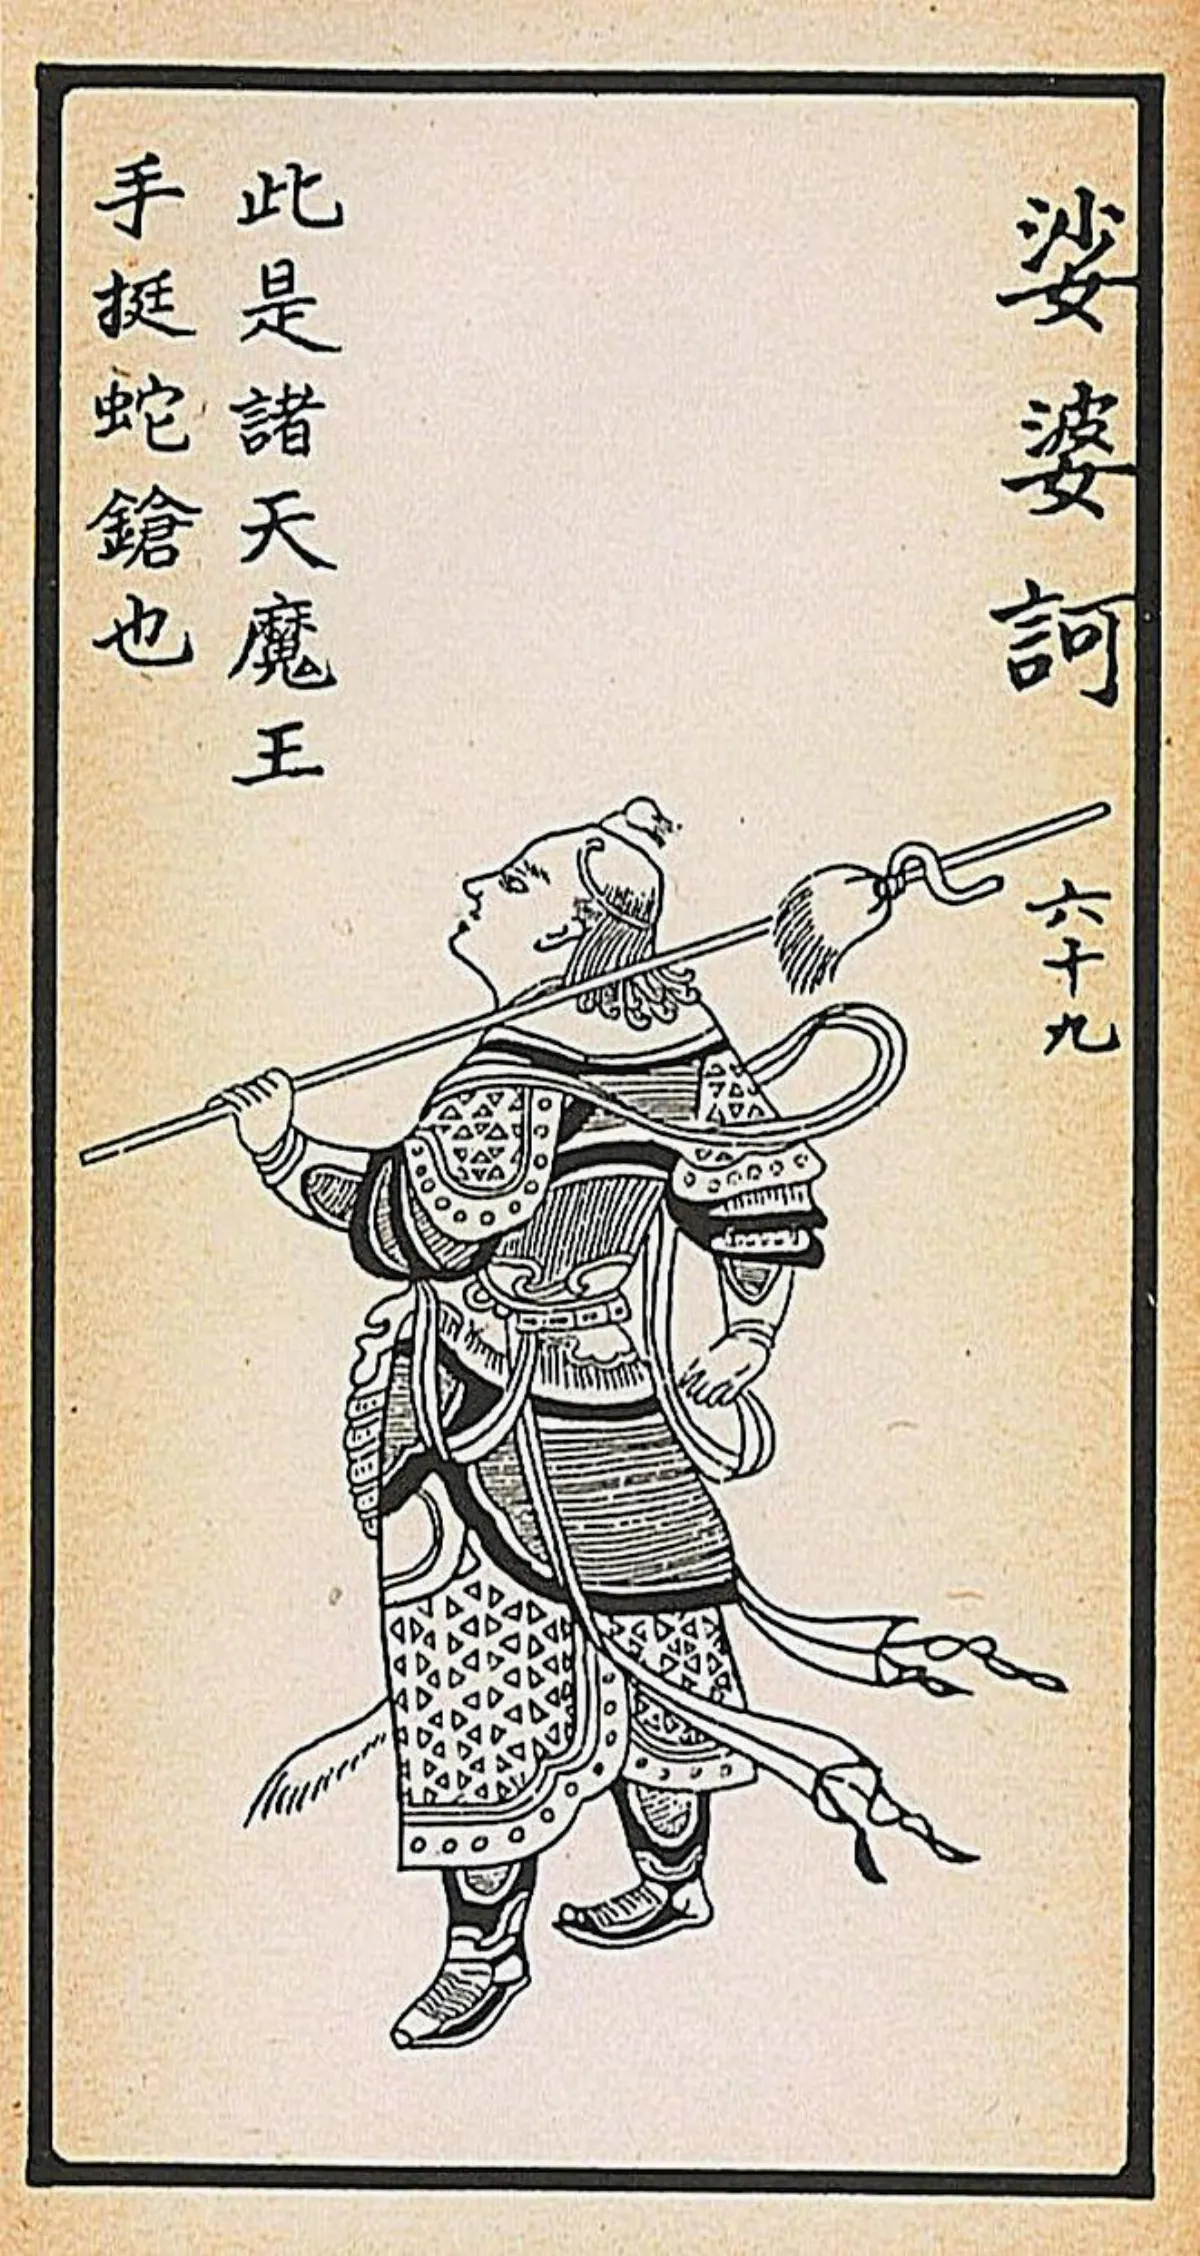 娑婆訶
六十九
此是諸天魔王
手挺蛇鎗也